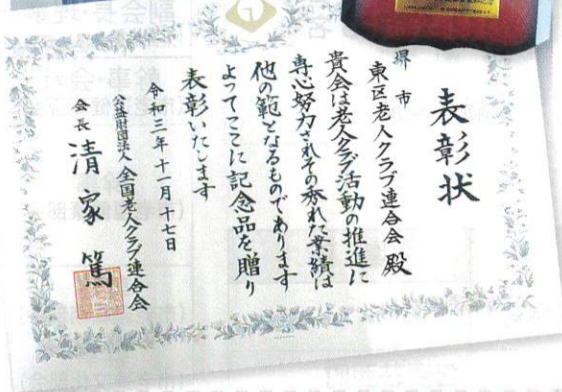 表彰状
堺市
東区老人クラブ連合会 殿
貴会は老人クラブ活動の推進に
専心努力されその秀れた業績は
他の範となるものであります
よってここに記念品を贈り
表彰いたします
令和三年十一月十七日
公益財団法人 全国老人クラブ連合会
会長 清家 篤